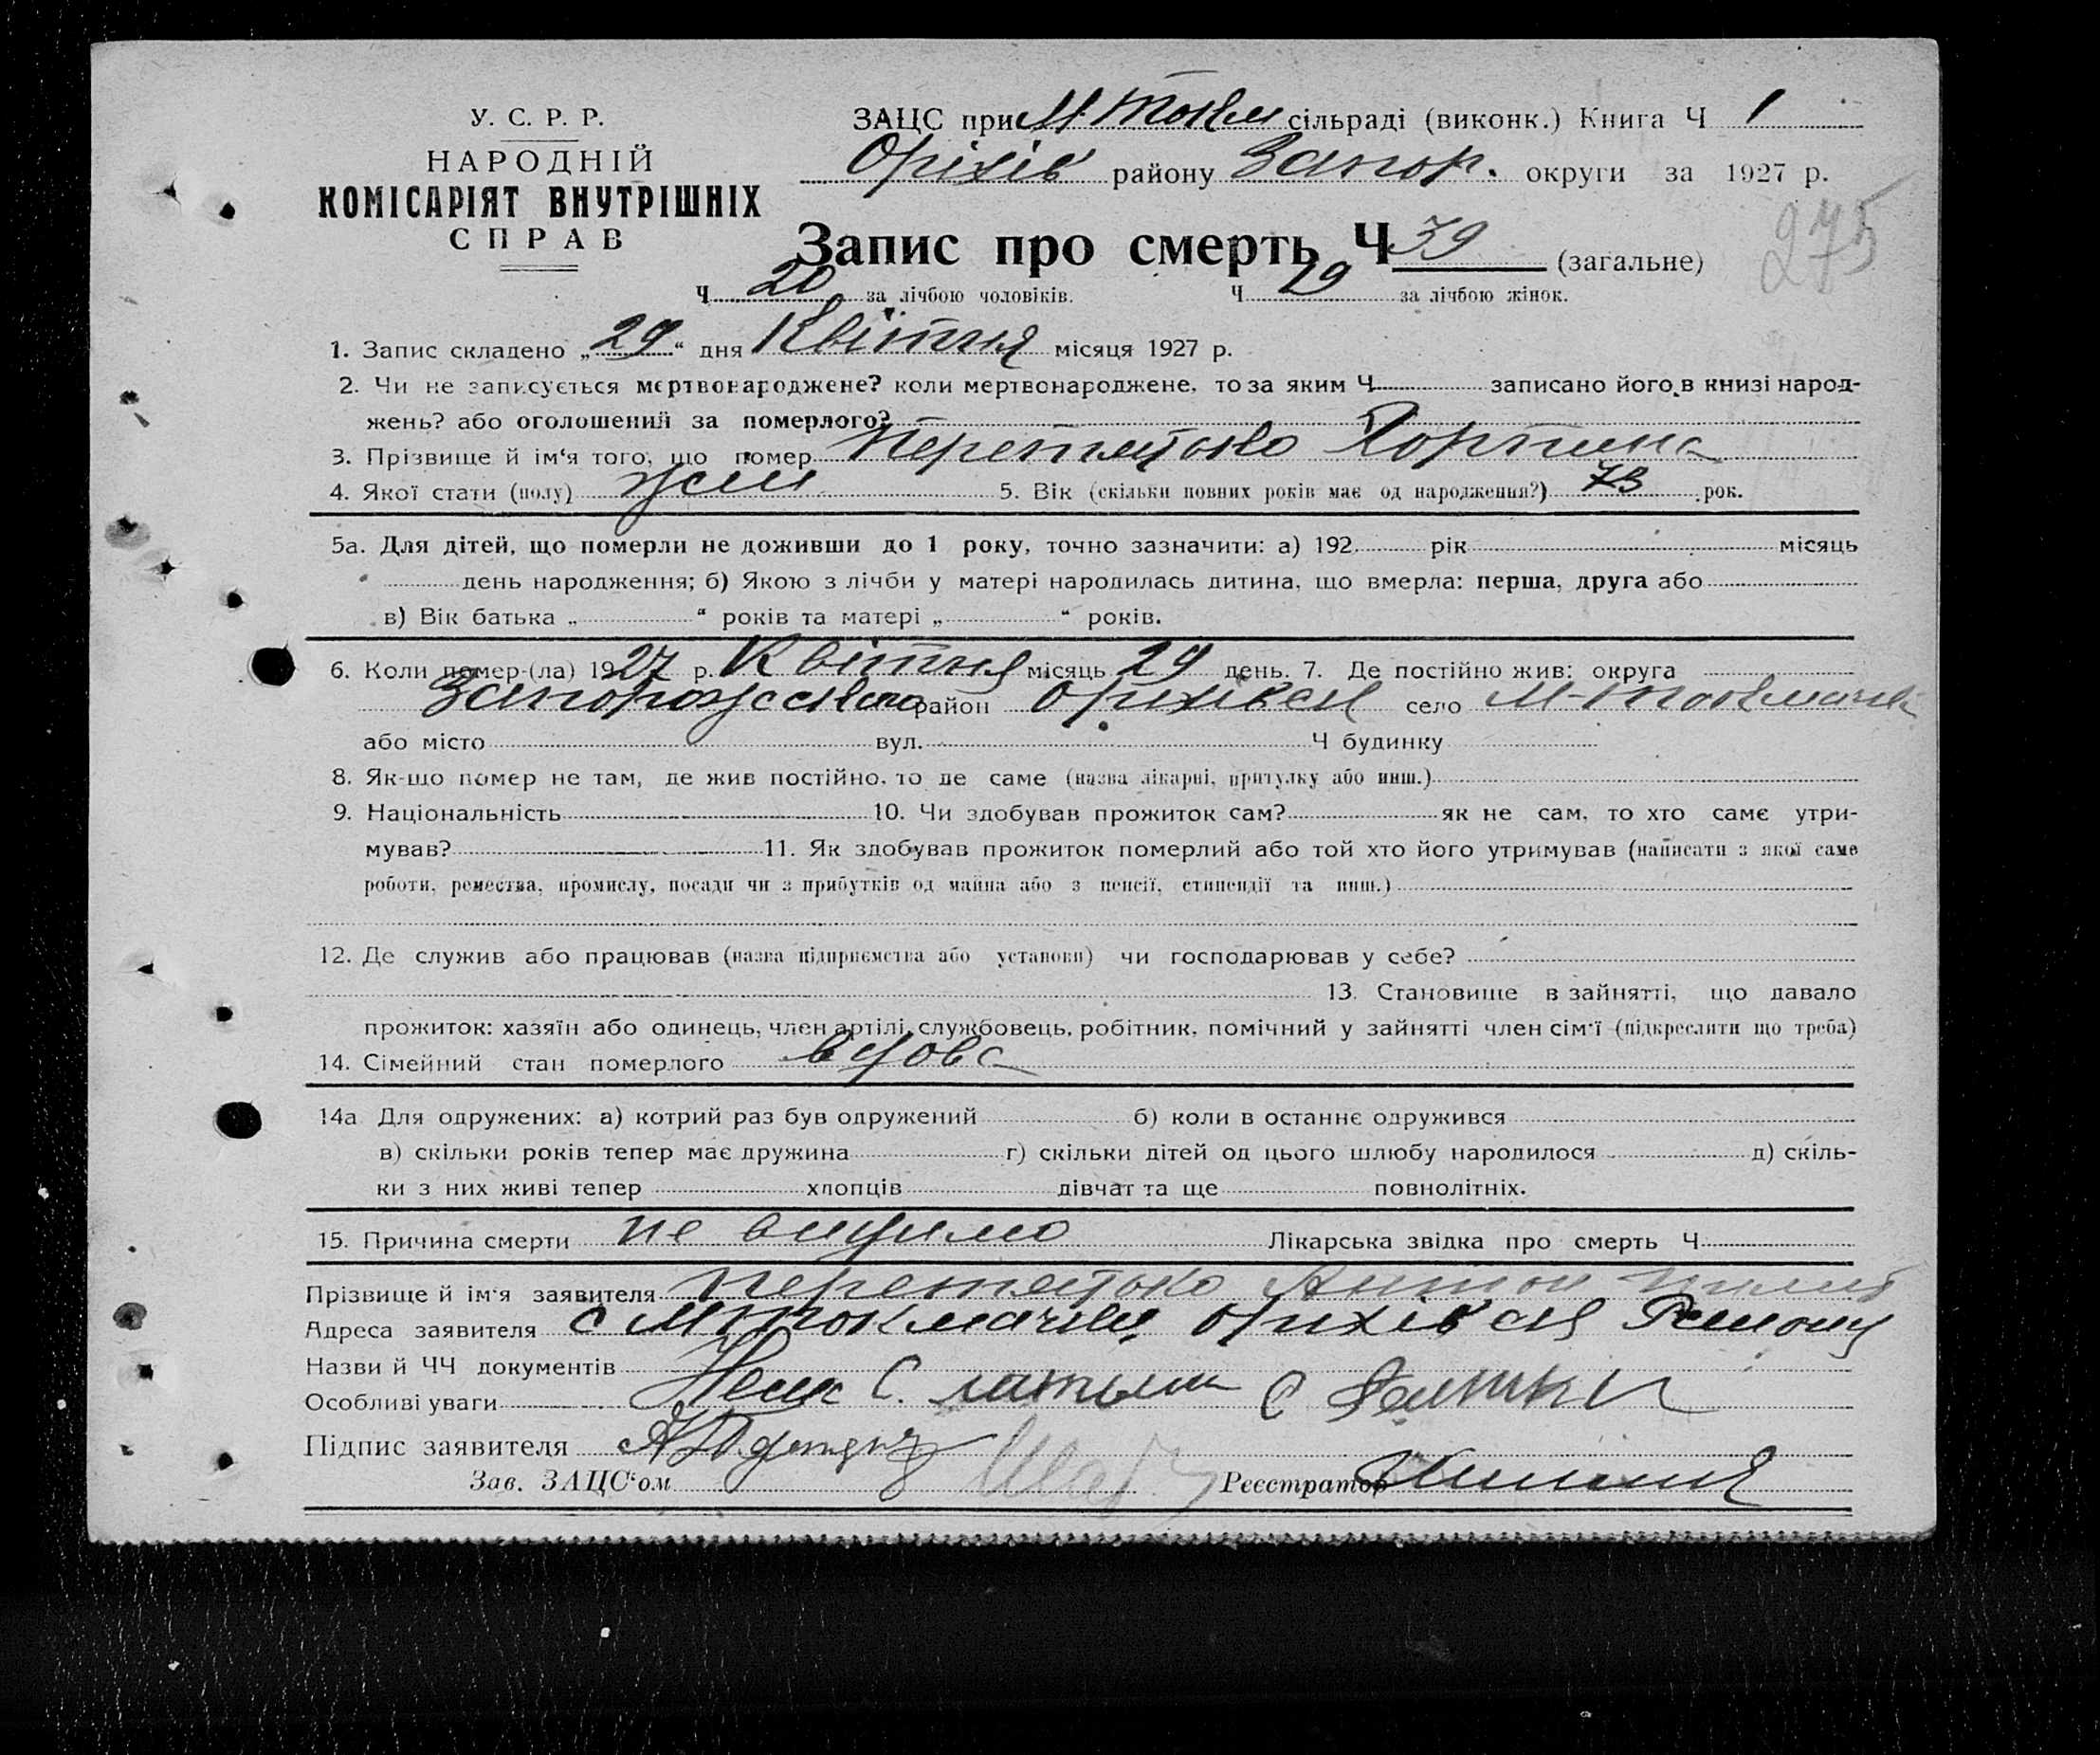 У. С. Р. Р.
НАРОДНІЙ
КОМІСАРІЯТ ВНУТРІШНІХ
СПРАВ
ЗАЦС при М-Токм сільраді (виконк.) Книга Ч 1
Оріхів району Запор. округи за 1927 р.
275
Запис про смерть Ч 39 (загальне)
Ч 20 за лічбою чоловіків. Ч 19 за лічбою жінок.
1. Запис складено „29“ дня Квітня місяця 1927 р.
2. Чи не записується мертвонароджене? коли мертвонароджене, то за яким Ч записано його в книзі народ-
жень? або оголошений за померлого?
3. Прізвище й ім‘я того, що помер Перетятько Горпина
4. Якої стати (полу) жін 5. Вік (скільки повних років має од народження?) 73 рок.
5а. Для дітей, що померли не доживши до 1 року, точно зазначити: а) 192 рік місяць
день народження; б) Якою з лічби у матері народилась дитина, що вмерла: перша, друга або
в) Вік батька „ “ років та матері „ “ років.
6. Коли помер-(ла) 1927 р. Квітня місяць 29 день. 7. Де постійно жив: округа
район Оріхівськ село М-Токмачка
або місто вул. Ч будинку
8. Як-що помер не там, де жив постійно, то де саме (назва лікарні, притулку або инш.)
9. Національність 10. Чи здобував прожиток сам? як не сам, то хто саме утри-
мував? 11. Як здобував прожиток померлий або той хто його утримував (написати з якої саме
роботи, ремества, промислу, посади чи з прибутків од майна або з пенсії, стипендії та инш.)
12. Де служив або працював (назва підприємства або установи) чи господарював у себе?
13. Становище в зайнятті, що давало
прожиток: хазяїн або одинець, член артілі, службовець, робітник, помічний у зайнятті член сім‘ї (підкреслити що треба)
14. Сімейний стан померлого вдова
14а Для одружених: а) котрий раз був одружений б) коли в останнє одружився
в) скільки років тепер має дружина г) скільки дітей од цього шлюбу народилося д) скіль-
ки з них живі тепер хлопців дівчат та ще повнолітніх.
15. Причина смерти не видимо Лікарська звідка про смерть Ч
Прізвище й ім‘я заявителя Перетятько Антон
Адреса заявителя с М Токмачки
Назви й ЧЧ документів
Особливі уваги
Підпис заявителя
Зав. ЗАЦС‘ом Реєстратор